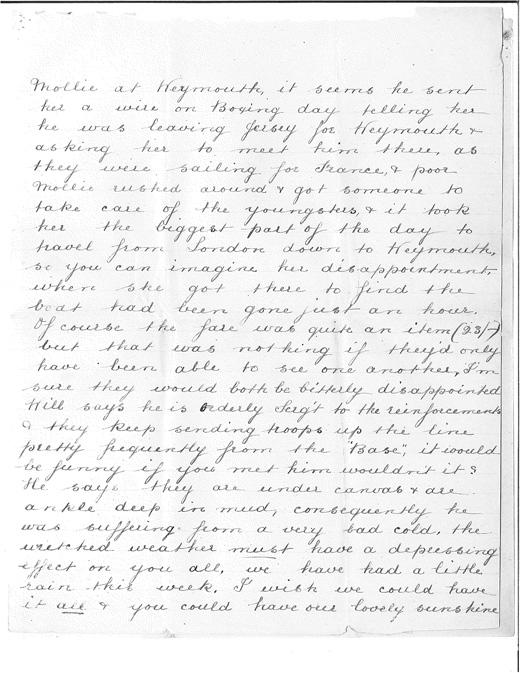 Mollie at Weymouth, it seems he sent
her a wire on Boxing day telling her
he was leaving Jersey for Weymouth &
asking her to meet him there, as
they were sailing for France, & poor
Mollie rushed around & got someone to
take care of the youngsters, & it took
her the biggest part of the day to
travel from London down to Weymouth,
so you can imagine her disappointment
when she got there to find the
boat had been gone just an hour.
Of course the fare was quite an item (23/-)
but that was nothing if they'd only
have been able to see one another, I'm
sure they would both be bitterly disappointed
Will says he is orderly Serg't to the reinforcements
& they keep sending troops up the line
pretty frequently from the "Base", it would
be funny if you met him wouldn't it?
He says they are under canvas & are
ankle deep in mud, consequently he
was suffering from a very bad cold, the
wretched weather must have a depressing
effect on you all, we have had a little
rain this week, I wish we could have
it all & you could have our lovely sunshine